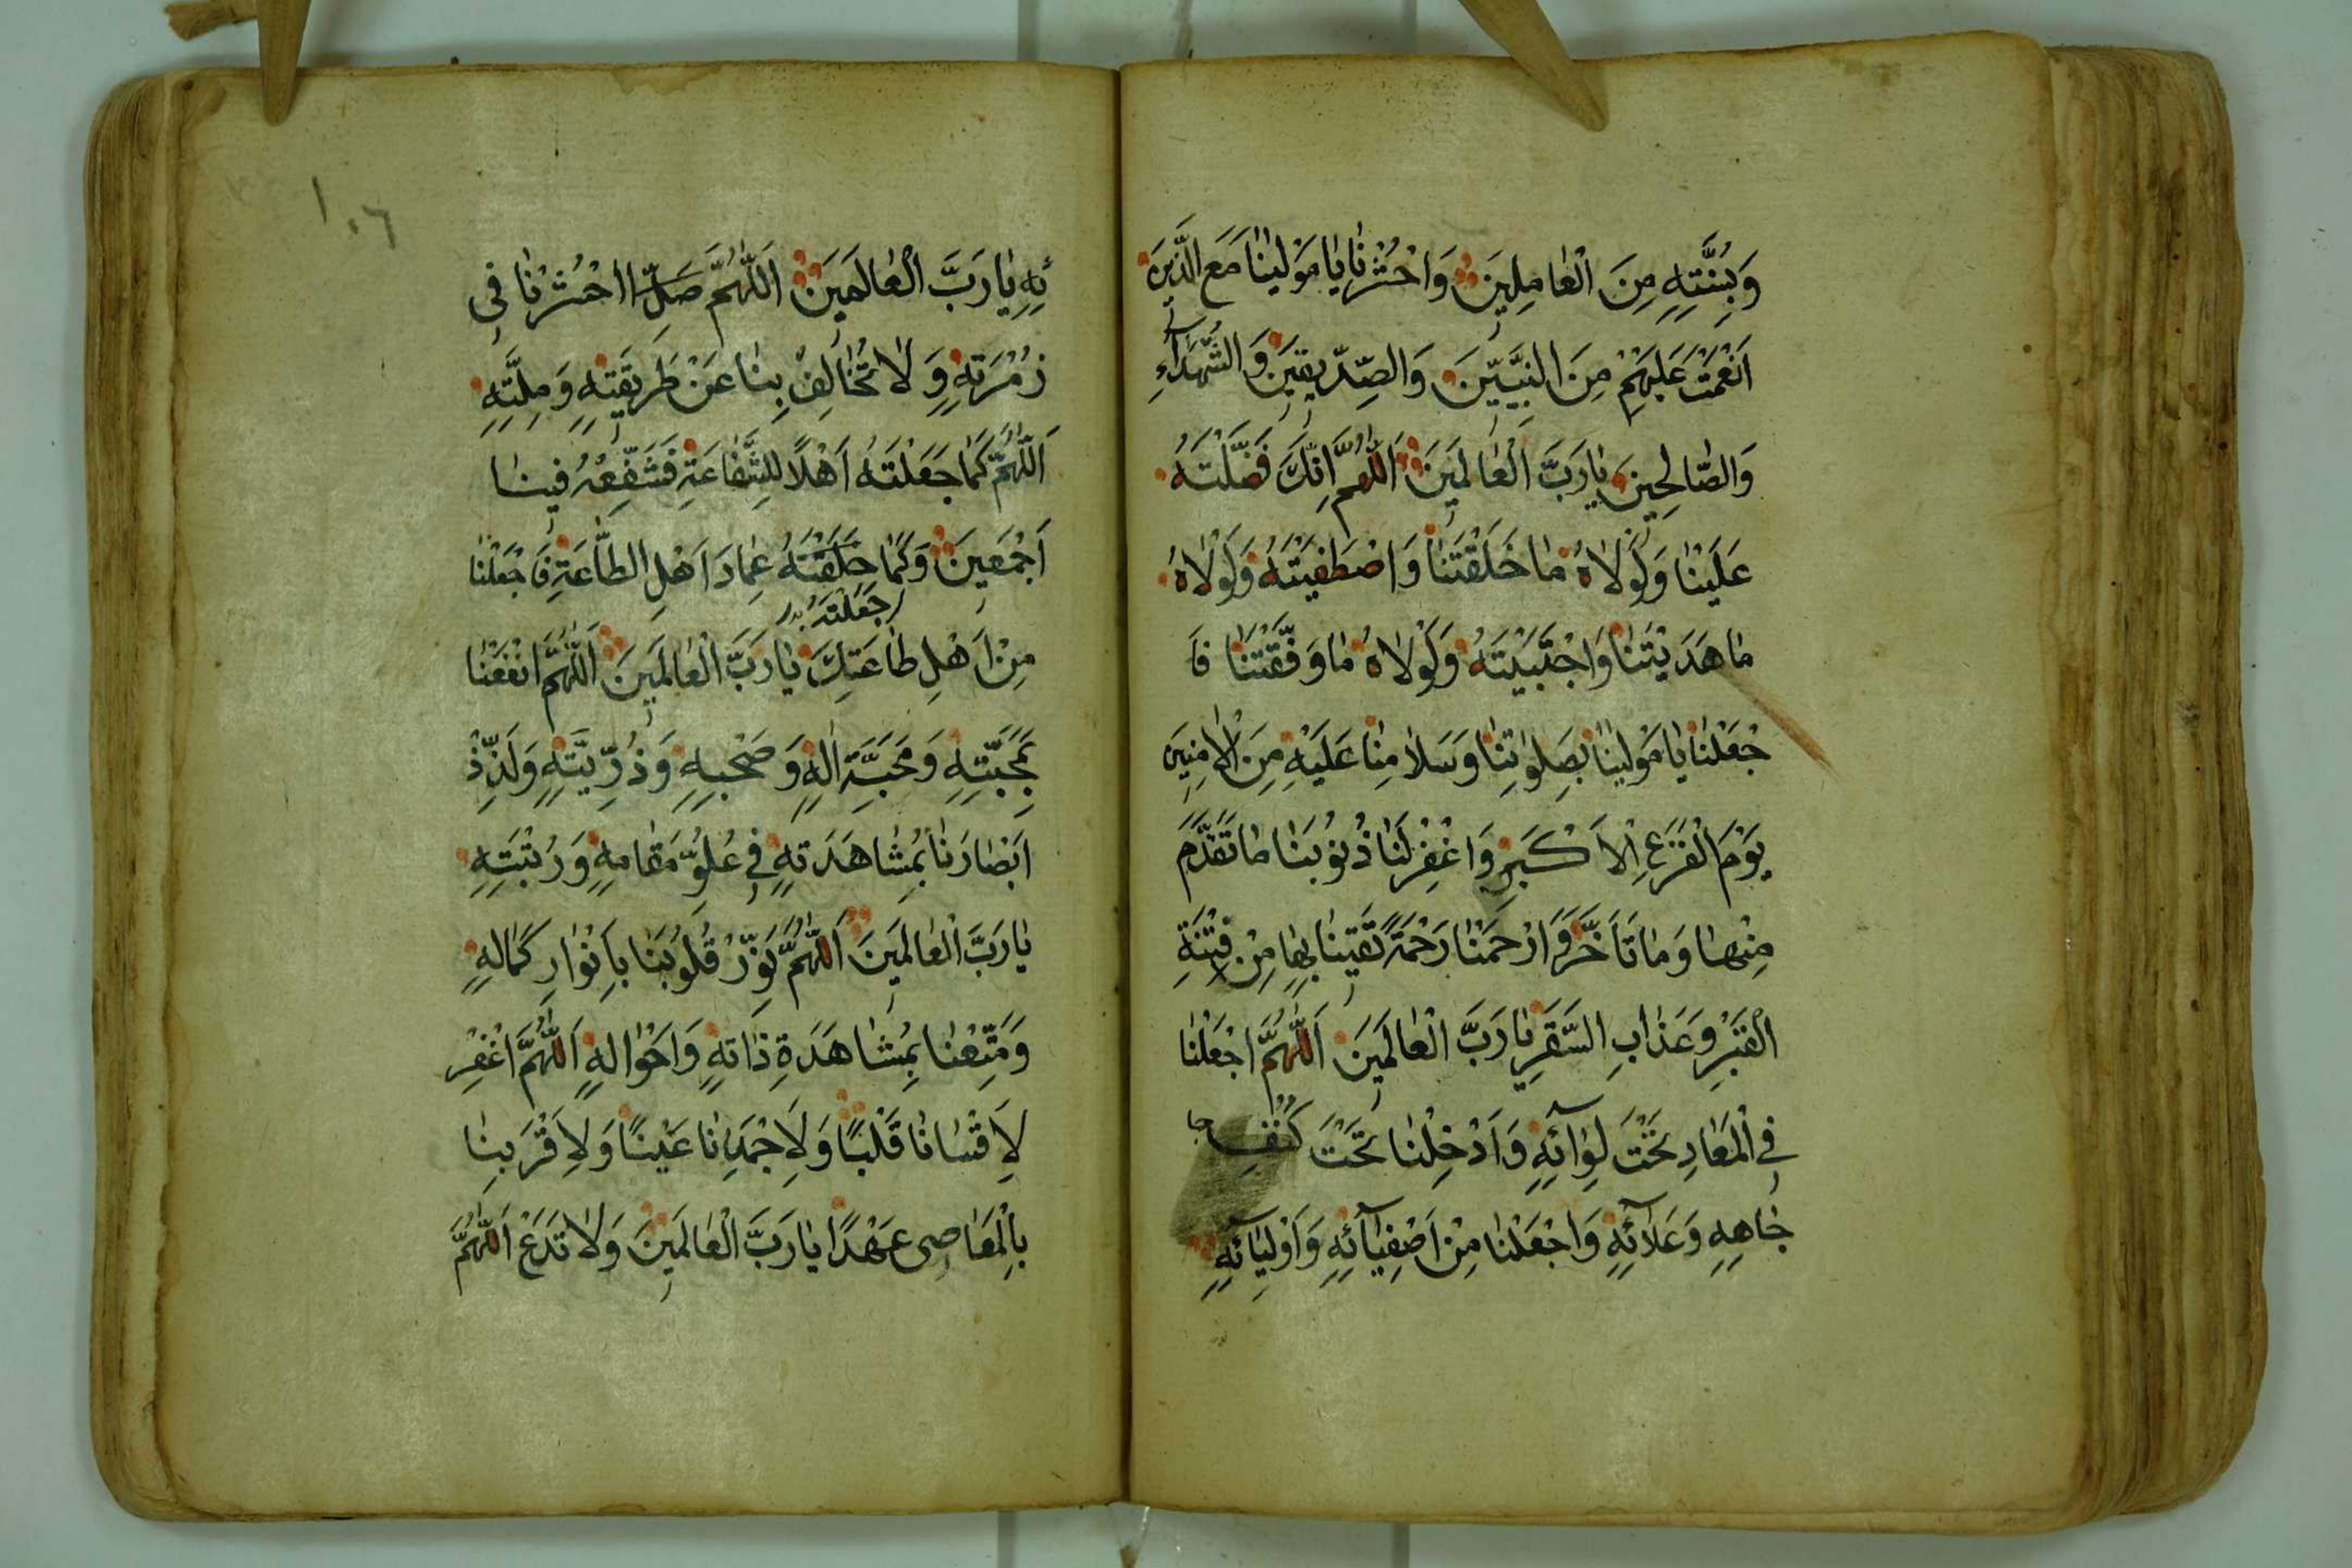 وَبِسُنَّتِهِ مِنَ الْعَامِلِينَ وَاحْشُرْنَا يَا مَوْلَيْنَا مَعَ الَّذِينَ
اَنْعَمْتَ عَلَيْهِمْ مِنَ النَّبِيِّينَ وَالصِّدِّيقِينَ وَالشُّهَدَآءِ
وَالصَّالِحِينَ يَارَبَّ الْعَالَمِينَ اَللّٰهُمَّ اِنَّكَ فَضَّلْتَهُ
عَلَيْنَا وَلَوْلَاهُ مَا خَلَقْتَنَا وَاصْطَفَيْتَهُ وَلَوْلَاهُ
مَا هَدَيْتَنَا وَاجْتَبَيْتَهُ وَلَوْلَاهُ مَا وَفَّقْتَنَا فَا
جْعَلْنَا يَا مَوْلَيْنَا بِصَلَوٰتِنَا وَسَلَامِنَا عَلَيْهِ مِنَ الْاٰمِنِينَ
يَوْمَ الْفَزَعِ الْاَكْبَرِ وَاغْفِرْ لَنَا ذُنُوبَنَا مَا تَقَدَّمَ
مِنْهَا وَمَا تَاَخَّرَ وَارْحَمْنَا رَحْمَةً تَقِينَا بِهَا مِنْ فِتْنَةِ
الْقَبْرِ وَعَذَابِ السَّقَرِ يَا رَبَّ الْعَالَمِينَ اَللّٰهُمَّ اجْعَلْنَا
فِي الْمَعَادِ تَحْتَ لِوَائِهِ وَاَدْخِلْنَا تَحْتَ كَنَفِ جا
جَاهِهِ وَعَلَآئِهِ وَاجْعَلْنَا مِنْ اَصْفِيَآئِهِ وَاَوْلِيَآئِهِ
١٠٦
ئِهِ يَارَبَّ الْعَالَمِينَ اَللّٰهُمَّ صَلِّ ااحْشُرْنَا فِي
زُمْرَتِهِ وَلَا تُخَالِفْ بِنَا عَنْ طَرِيقَتِهِ وَمِلَّتِهِ
اَللّٰهُمَّ كَمَا جَعَلْتَهُ اَهْلًا لِلشَّفَاعَةِ فَشَفِّعْهُ فِينَا
اَجْمَعِينَ وَكَمَا خَلَقْتَهُ عِمَادَ اَهْلِ الطَّاعَةِ فَاجْعَلْنَا
جَعَلْتَهُ
مِنْ اَهْلِ طَاعَتِكَ يَارَبَّ الْعَالَمِينَ اَللّٰهُمَّ انْفَعْنَا
بِمَحَبَّتِهِ وَمَحَبَّةِ اٰلِهِ وَصَحْبِهِ وَذُرِّيَّتِهِ وَلَذِّذْ
اَبْصَارَنَا بِمُشَاهَدَتِهِ فِي عُلُوِّ مَقَامِهِ وَرُتْبَتِهِ
يَارَبَّ الْعَالَمِينَ اَللّٰهُمَّ نَوِّرْ قُلُوبَنَا بِاَنْوَارِ كَمَالِهِ
وَمَتِّعْنَا بِمُشَاهَدَةِ ذَاتِهِ وَاَحْوَالِهِ اَللّٰهُمَّ اغْفِرْ
لِاَقْسَانَا قَلْبًا وَلِاَجْمَدِنَا عَيْنًا وَلِاَقْرَبِنَا
بِالْمَعَاصِي عَهْدًا يَارَبَّ الْعَالَمِينَ وَلَا تَدَعْ اَللّٰهُمَّ